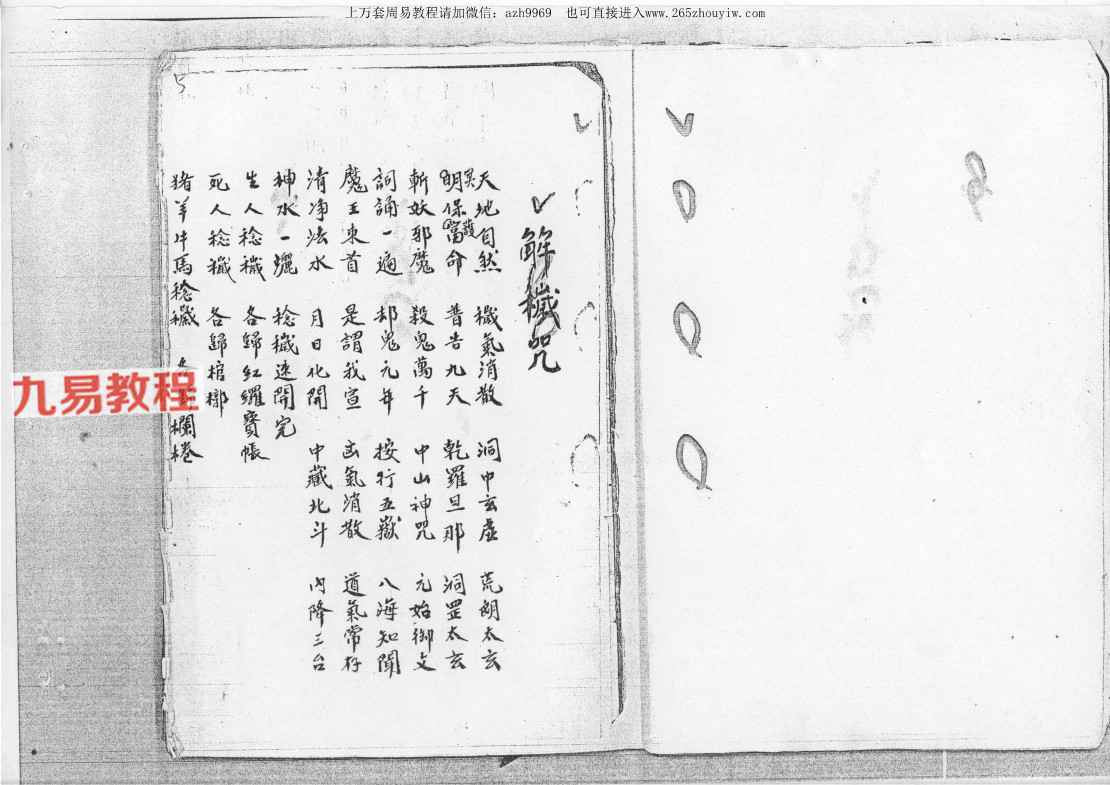 上万套周易教程请加微信：azh9969　也可直接进入www.265zhouyiw.com
5
解穢咒
天地自然　穢氣消散　洞中玄虛　荒朗太玄
明保當命　普告九天　乾羅旦那　洞罡太玄
護
斬妖邪魔　殺鬼萬千　中山神咒　元始御文
詞誦一遍　却鬼元年　按行五嶽　八海知聞
魔王束首　是謂我宣　凶氣消散　道氣常存
清净法水　月日化開　中藏北斗　內降三台
神水一灑　稔穢速開完
生人稔穢　各歸紅羅寶帳
死人稔穢　各歸棺槨
猪羊牛馬稔穢　欄棬
九易教程